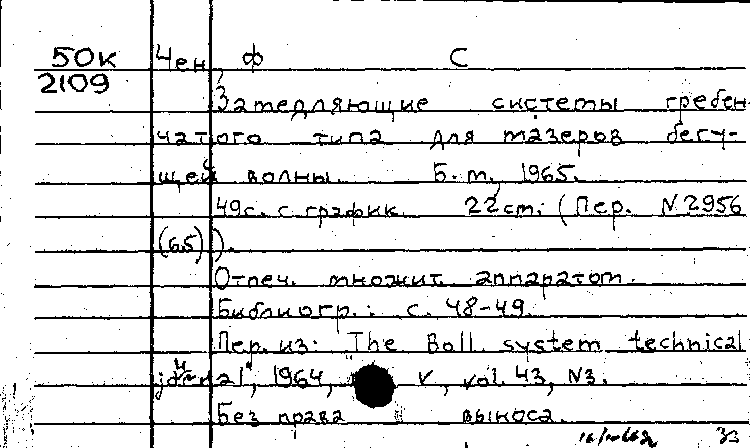 50к Чен, Ф С
2109
Затедляющие системы гребен
чатого типа для мазеров бегу-
щей волны. Б.м., 1965.
49с. с график. 22cm. (Пер. N2956
(65)).
Отпеч. множит. аппаратом.
Библиогр.: с. 48-49.
Пер. из: The Boll system technical
journal", 1964, V, vol. 43, N3.
Без права выноса.